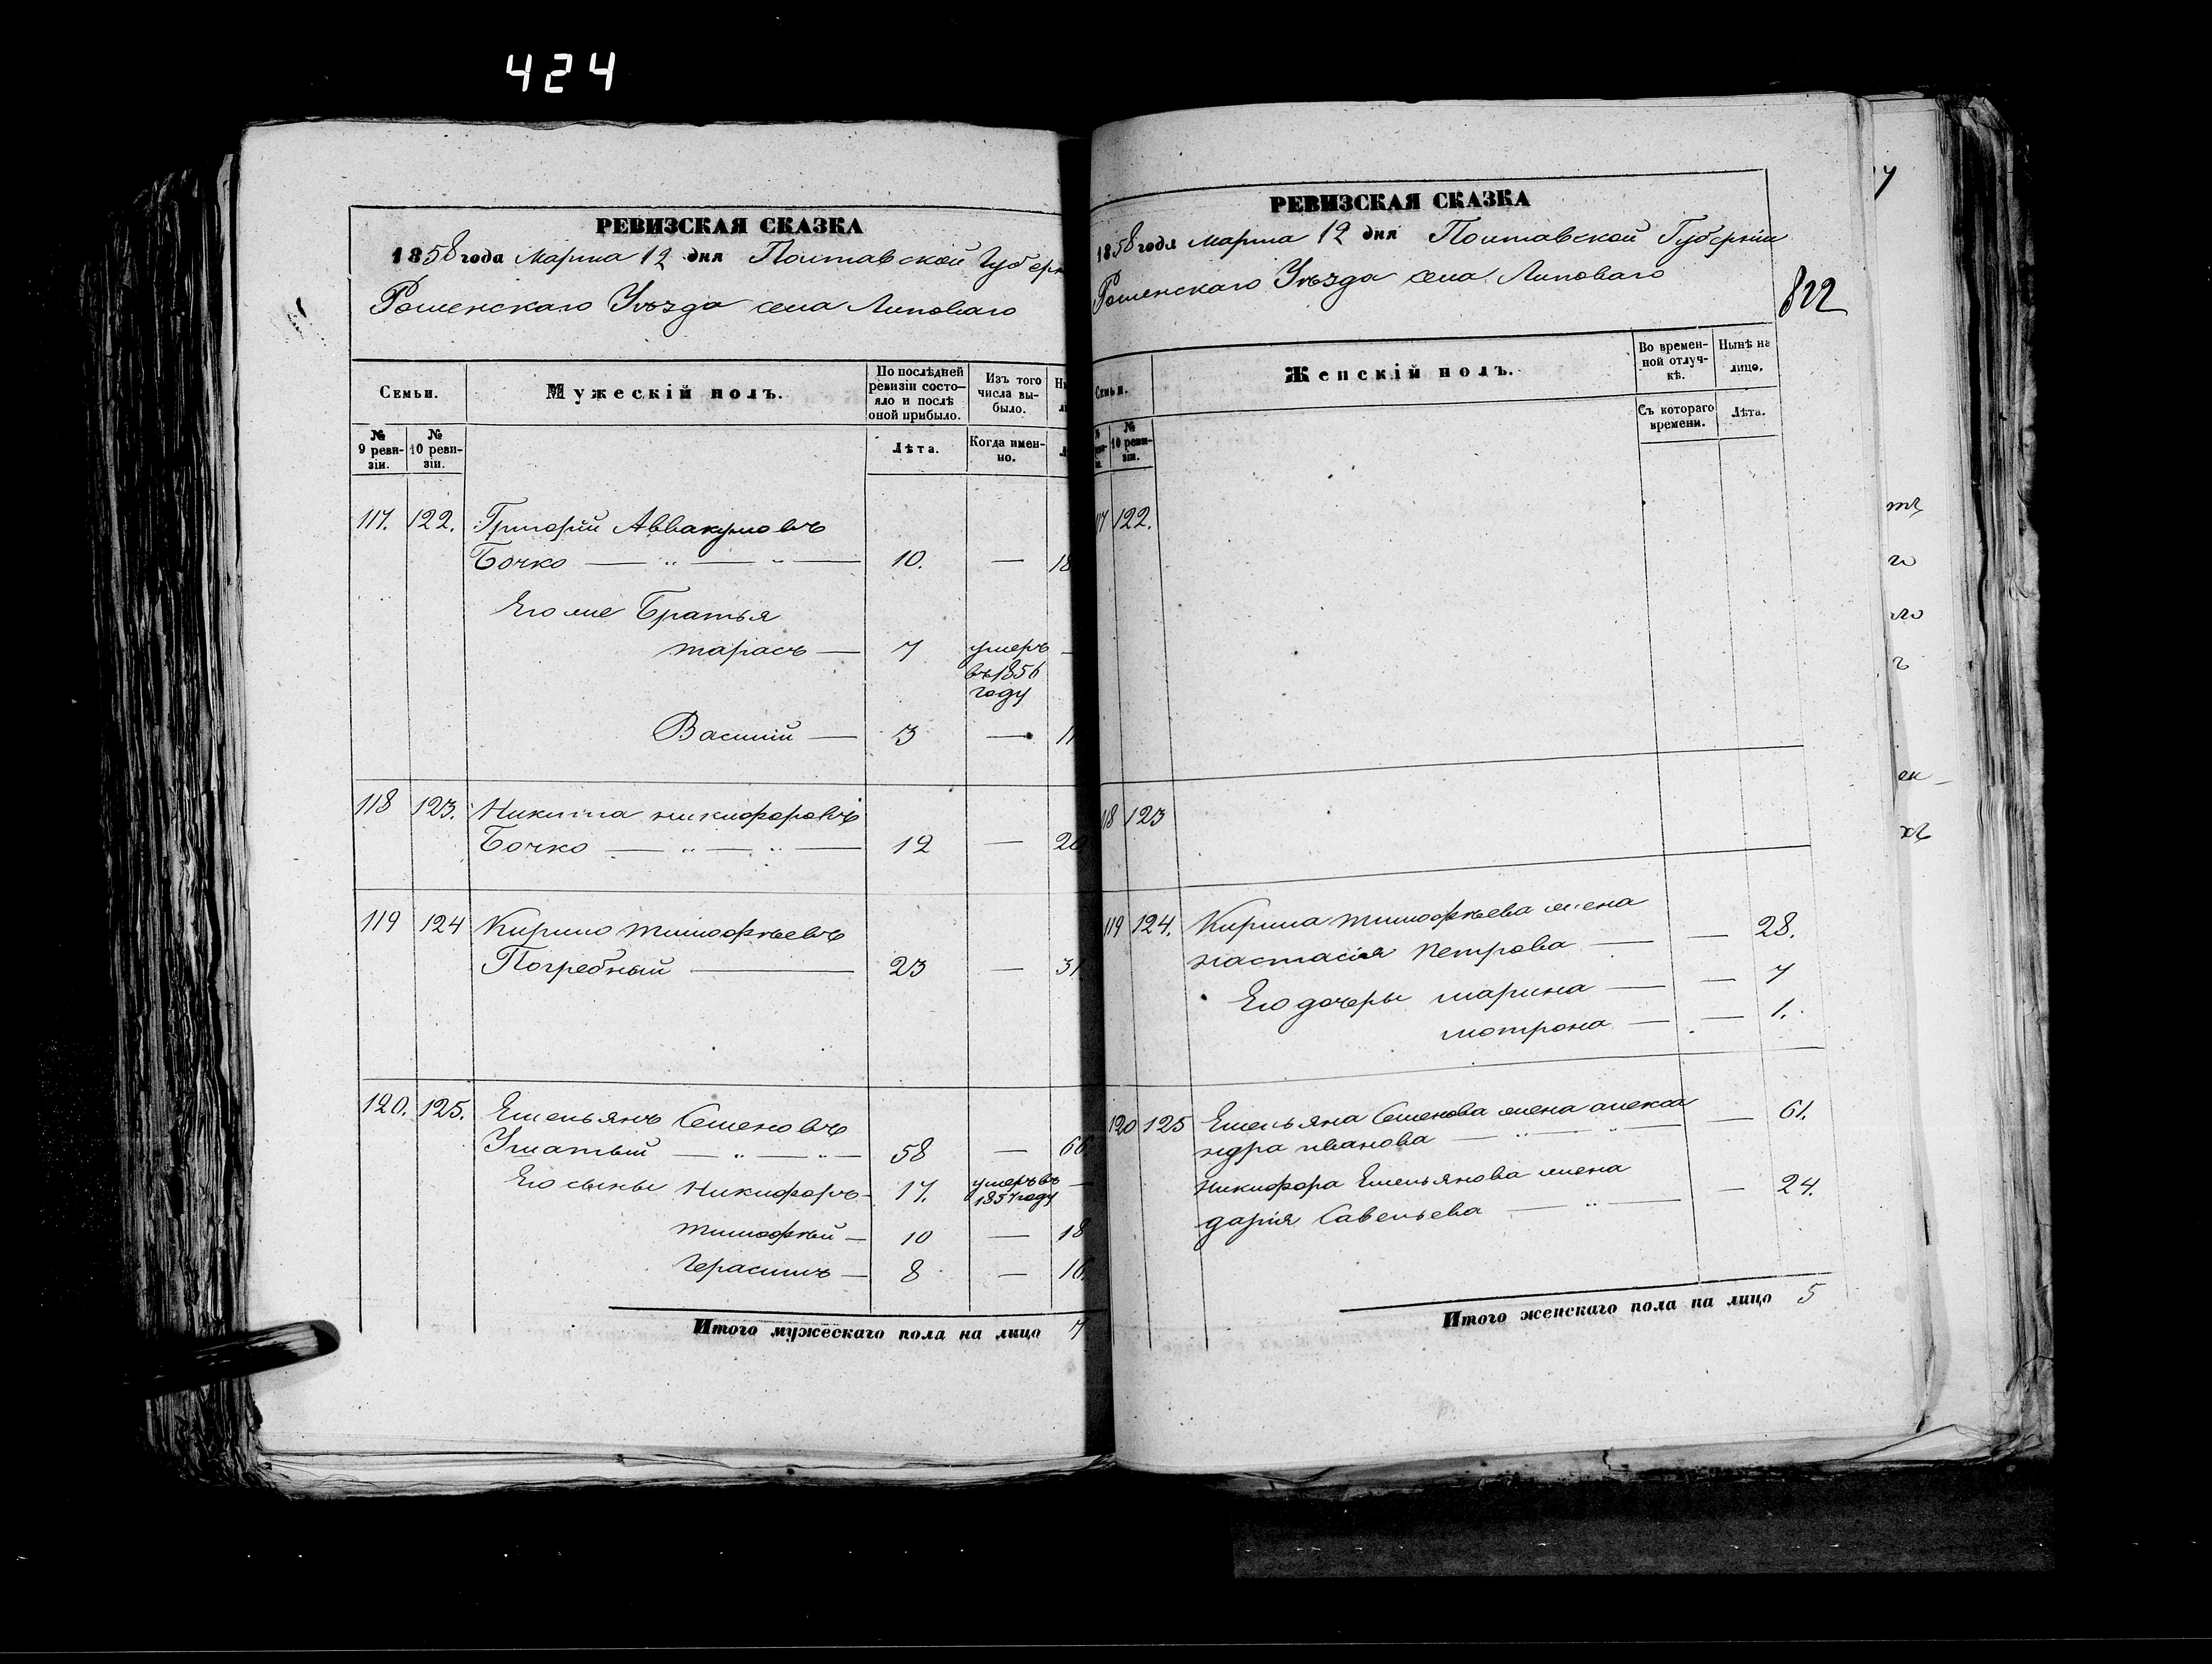 424
РЕВИЗСКАЯ СКАЗКА
1858 года Марта 12 дня Полтавской Губерн
Роменскаго Уѣзда села Липоваго
Семьи.
Мужескій полъ.
По послѣдней ревизіи состояло и послѣ оной прибыло.
Изъ того числа выбыло.
№ 9 ревизіи.
№ 10 ревизіи.
Лѣта.
Когда именно.
117. 122. Григорій Аввакумовъ
Бочко 10. — 18
Его же Братья
тарасъ — 7 умеръ
въ 1856
году
Василій — 3 — 11
118 123. Никита никифоровъ
Бочко 12 — 20
119 124 Кирило тимофѣевъ
Погребный 23 — 31
120. 125. Емельянъ Семеновъ
Ушатый 58 — 66
Его сыны Никифоръ 17. умеръ въ —
1857 году
тимофѣй — 10 — 18
Герасимъ — 8 — 16.
Итого мужескаго пола на лицо 7
РЕВИЗСКАЯ СКАЗКА
1858 года марта 12 дня Полтавской Губерніи
Роменскаго Уѣзда села Липоваго
822
Семьи.
Женскій полъ.
Во временной отлучкѣ.
Нынѣ на лицо.
№ 10 ревизіи.
Съ котораго времени.
Лѣта.
117 122.
118 123
119 124. Кирила тимофѣева жена
настасія Петрова — — 28.
Его дочеры марина — — 7
мотрона — — 1.
120 125 Емельяна Семенова жена алекса
ндра иванова — 61.
Никифора Емельянова жена
дарія Савельева — 24.
Итого женскаго пола на лицо 5